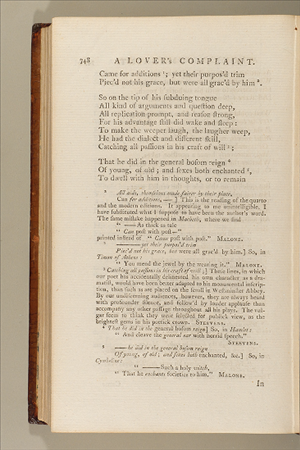 748 A LOVER's COMPLAINT.
Came for additions ; yet their purpos'd trim
Piec'd not his grace, but were all grac'd by him .
So on the tip of his subduing tongue
All kind of arguments and question deep,
All replication prompt, and reason strong,
For his advantage still did wake and sleep:
To make the weeper laugh, the laugher weep,
He had the dialect and different skill,
Catching all passions in his craft of will ;
That he did in the general bosom reign
Of young, of old ; and sexes both enchanted ,
To dwell with him in thoughts, or to remain
All aids, themselves made fairer by their place,
Can for additions, — ] This is the reading of the quarto
and the modern editions. It appearing to me unintelligible, I
have substituted what I suppose to have been the author's word.
The same mistake happened in Macbeth, where we find
" — As thick as tale
" Can post with post—"
printed instead of " Came post with post." MALONE.
— yet their purpos'd trim
Piec'd not his grace, but were all grac'd by him.] So, in
Timon of Athens:
" You mend the jewel by the wearing it." MALONE.
Catching all passions in his craft of will ;] These lines, in which
our poet has accidentally delineated his own character as a dra-
matist, would have been better adapted to his monumental inscrip-
tion, than such as are placed on the scroll in Westminster Abbey.
By our undiscerning audiences, however, they are always heard
with profounder silence, and followed by louder applause than
accompany any other passage throughout all his plays. The vul-
gar seem to think they were selected for publick view, as the
brightest gems in his poetick crown. STEEVENS.
That he did in the general bosom reign] So, in Hamlet:
" And cleave the general ear with horrid speech."
STEEVENS.
— he did in the general bosom reign
Of young, of old ; and sexes both enchanted, &c.] So, in
Cymbeline:
" — Such a holy witch,
" That he enchants societies to him." MALONE.
In